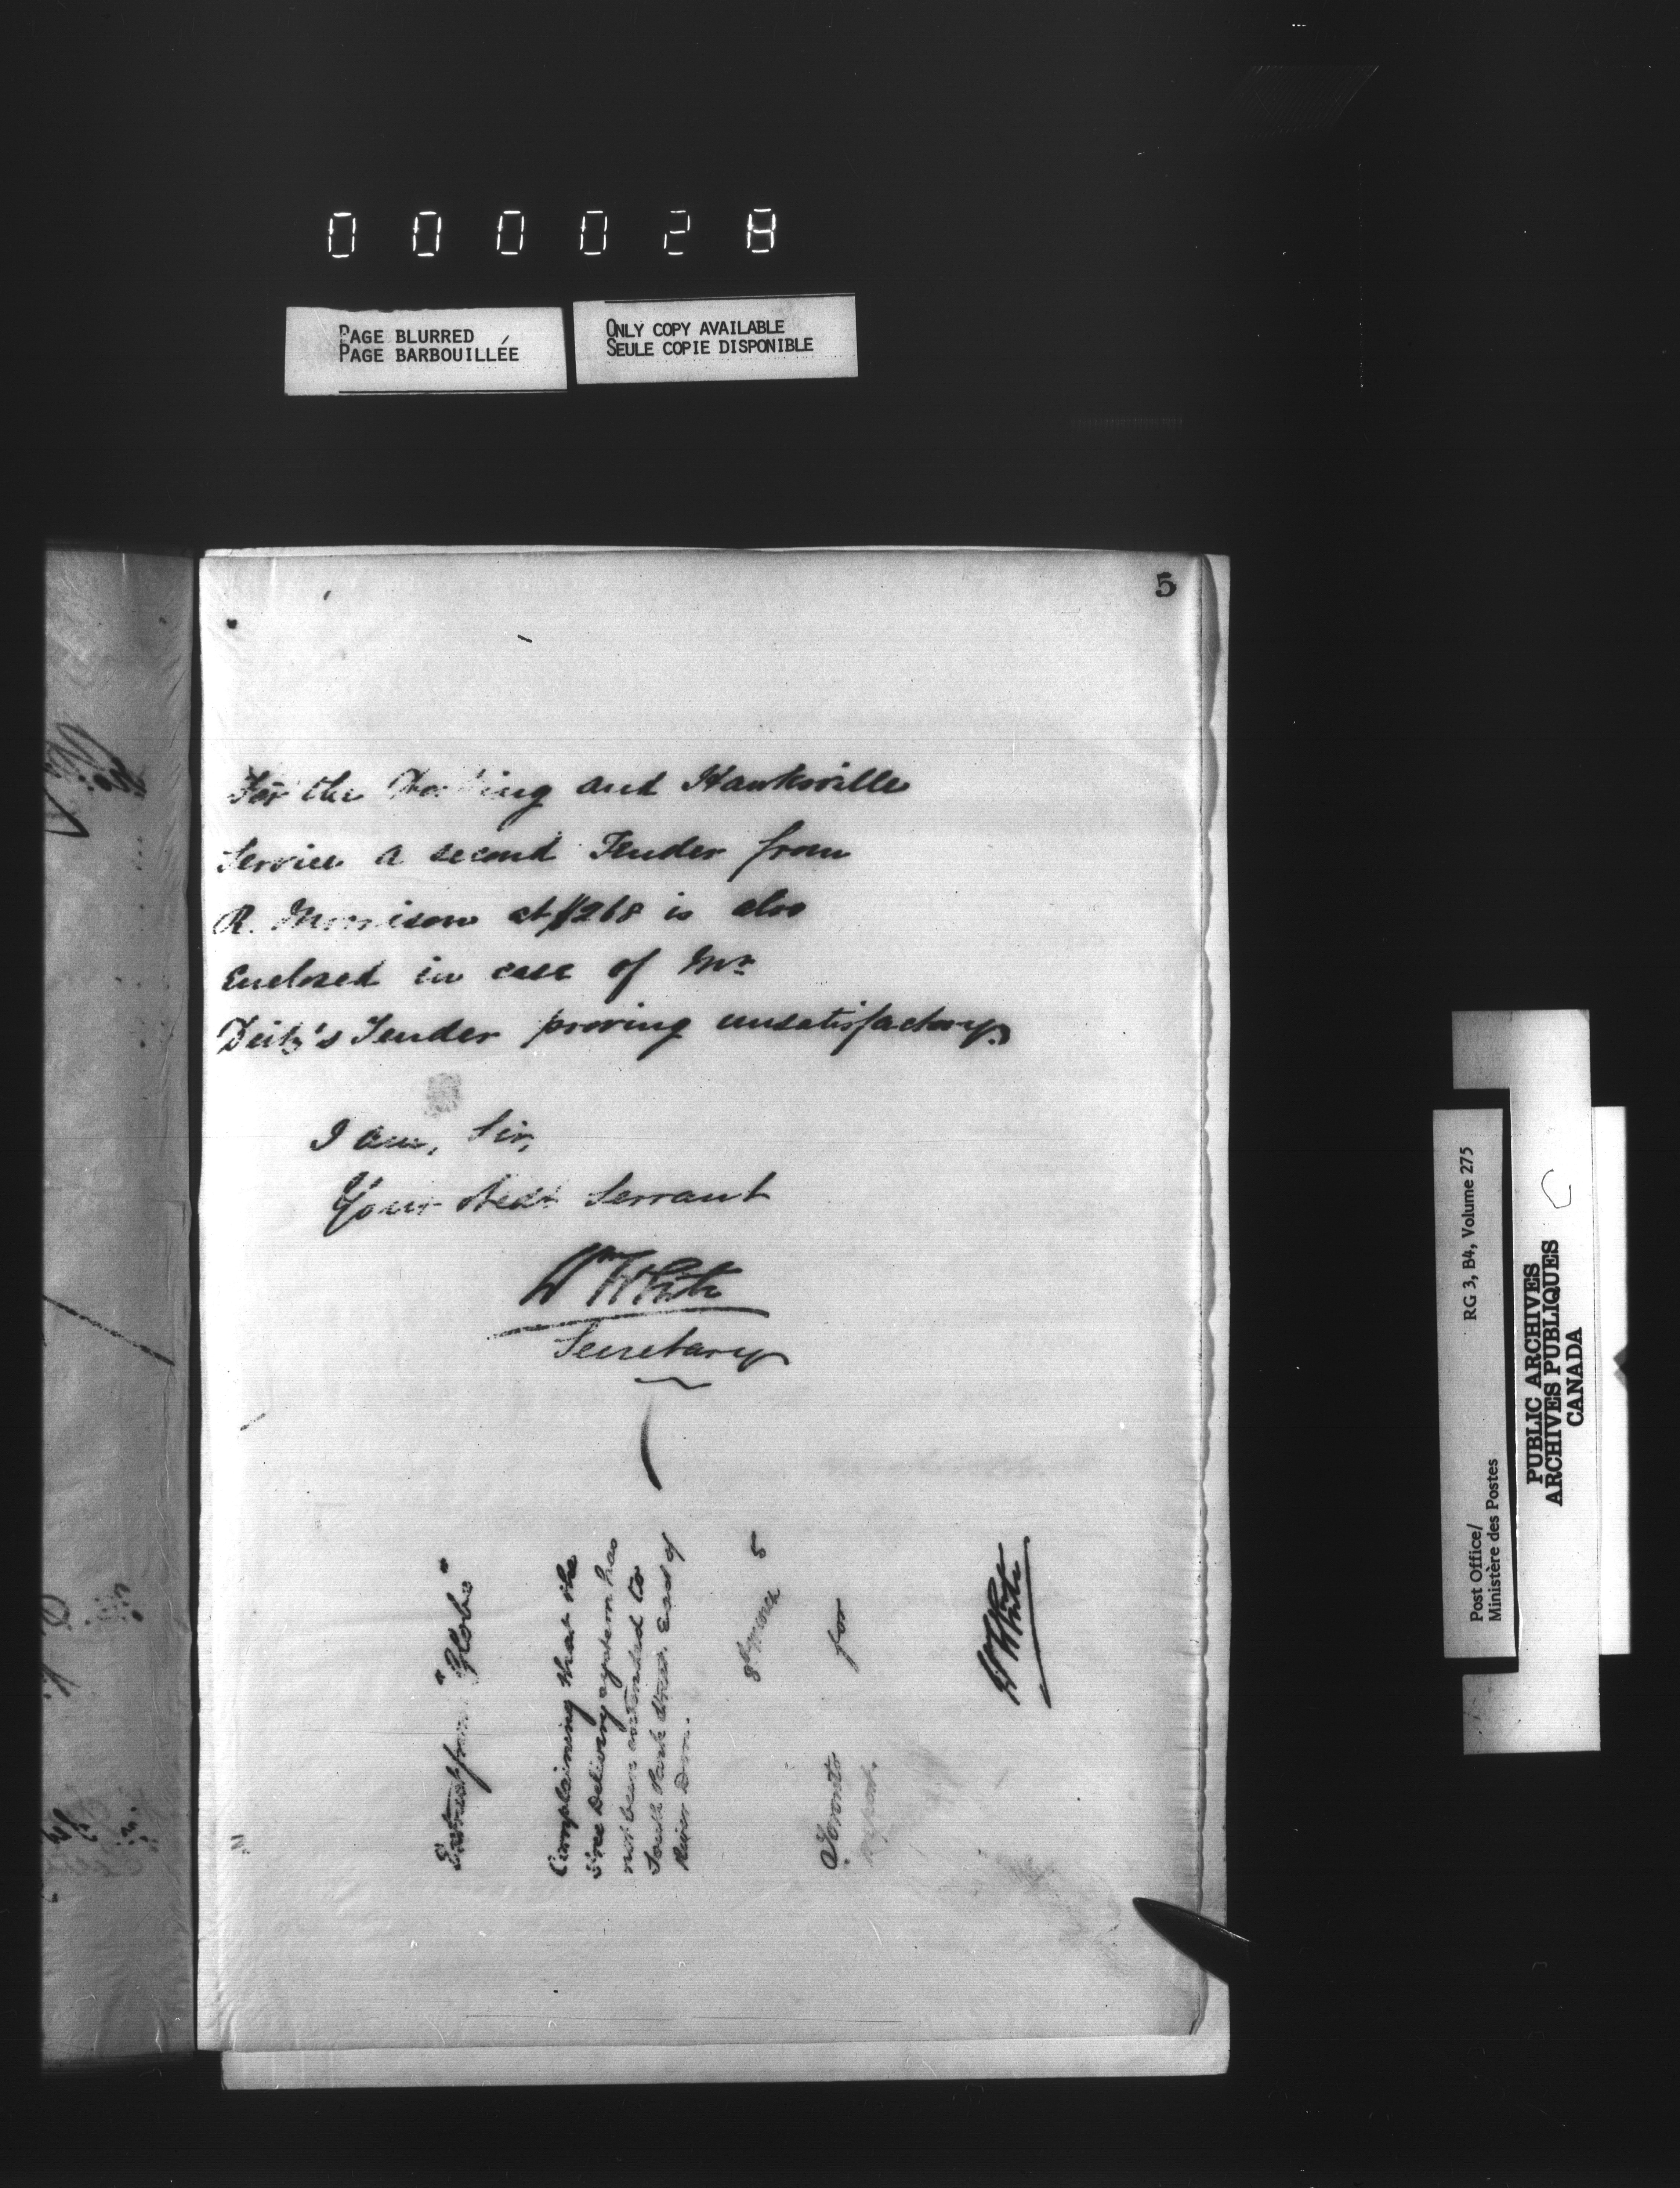 000028
PAGE BLURRED
PAGE BARBOUILLÉE
ONLY COPY AVAILABLE
SEULE COPIE DISPONIBLE
5
For the and Hawksville
Service a second Tender from
R. Morrison at $268 is also
Enclosed in case of Mr
Deitz's Tender proving unsatisfactory.
I am, Sir,
Your Obedt Servant
Wm White
Secretary
Extract from "Globe"
Complaining that the
Free Delivery system has
not been extended to
South Park Street East of
River Don.
8th 5
Toronto for
report.
Wm White
Post Office/ RG 3, B4, Volume 275
Ministère des Postes
PUBLIC ARCHIVES
ARCHIVES PUBLIQUES
CANADA